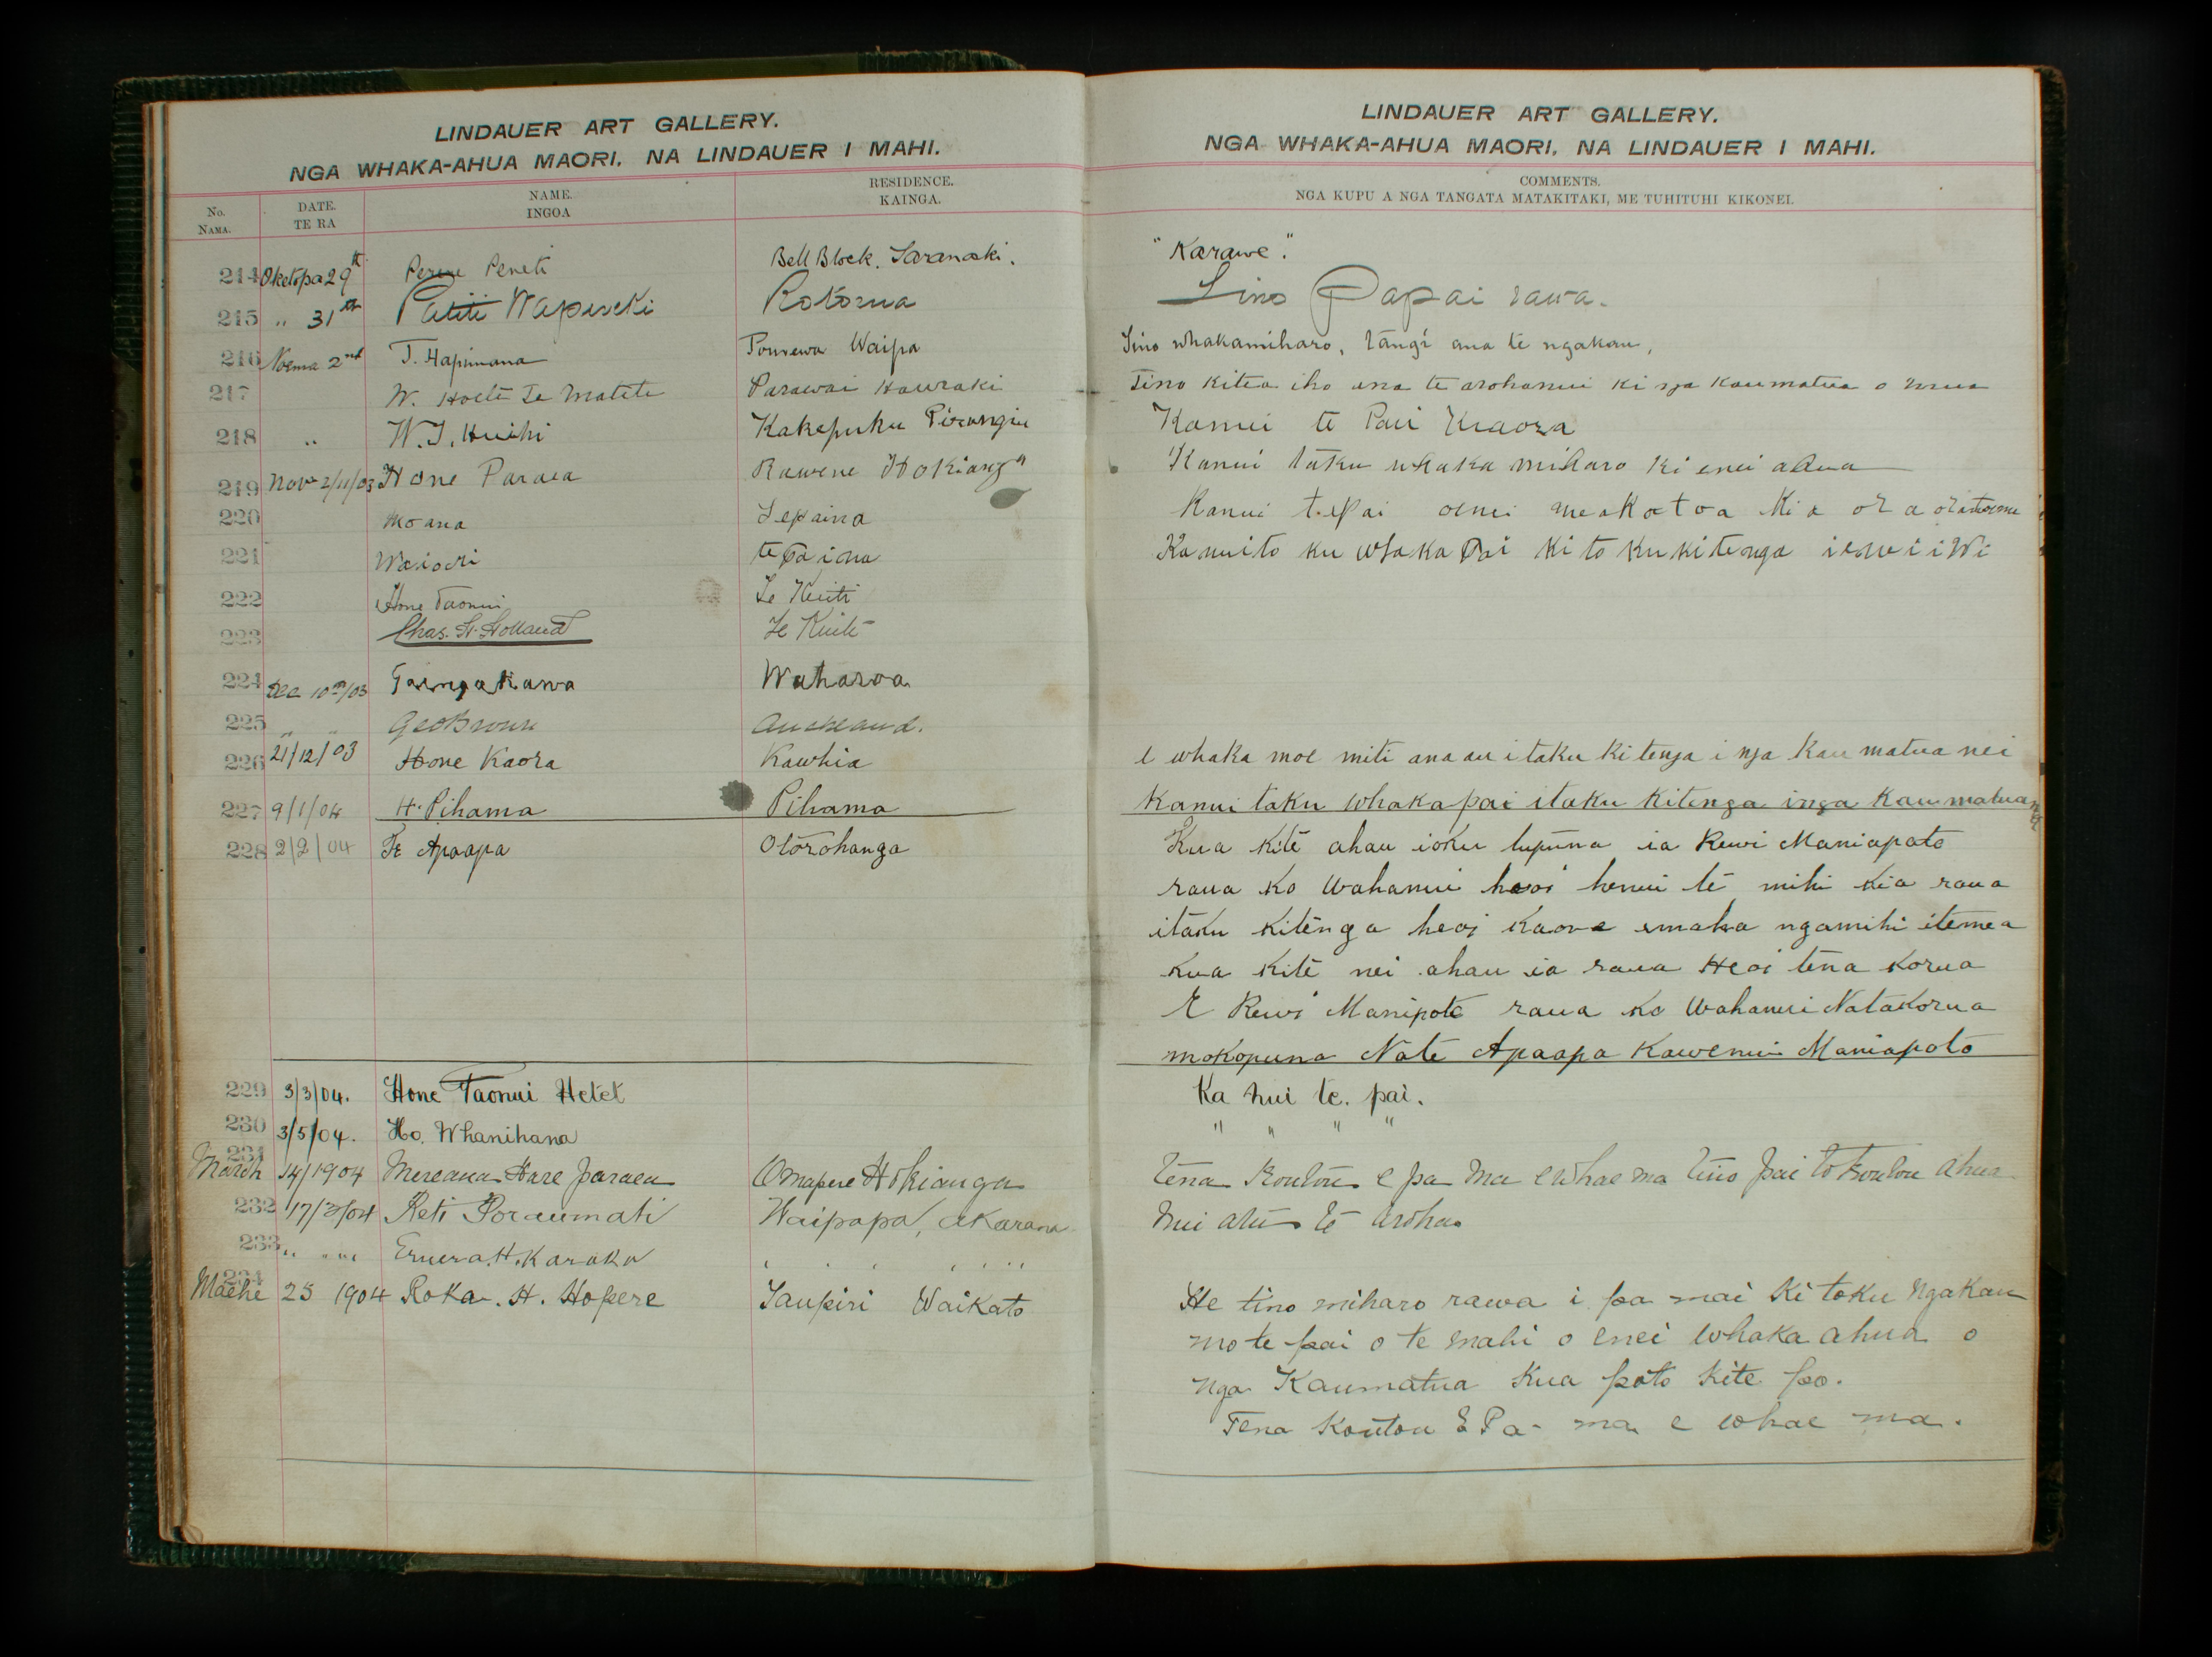 LINDAUER ART GALLERY.
NGA WHAKA-AHUA MAORI. NA LINDAUER I MAHI.
No. NAMA. DATE. TE RA NAME. INGOA RESIDENCE. KAINGA.
214 Oketopa 29th Perere Peneti Bell Block. Taranaki.
215 " 31st Patiti Rotorua
216 Noema 2nd T. Hapimana Waipa
217 W. Hoete Te Matete Parawai Hauraki
218 " W. T. Huihi Kakepuku Pirongia
219 Novr 2/11/03 Hone Paraea Rawene Hokianga
220 Moana Tepaina
221 Waiocri te Paina
222 Hone Taonui Te Kuiti
223 Chas. H. Holland Te Kuiti
224 Dec 10th/03 Taingakawa Waharoa
225 " " Geo Brown Auckland.
226 21/12/03 Hone Kaora Kawhia
227 9/1/04 H. Pihama Pihama
228 2/2/04 Te Apaapa Otorohanga
229 3/3/04. Hone Taonui Hetet
230 3/5/04. Ho. Whanihana
231 March 14/1904 Mereana Hare paraea Omapere Hokianga
232 17/3/04 Reti Poraumati Waipapa, Akarana
233 " " " Eruera. H. Karaka
234 Maehe 25 1904 Roka. H. Hopere Taupiri Waikato
LINDAUER ART GALLERY.
NGA WHAKA-AHUA MAORI. NA LINDAUER I MAHI.
COMMENTS.
NGA KUPU A NGA TANGATA MATAKITAKI, ME TUHITUHI KIKONEI.
"Karawe".
Tino Papai rawa.
Tino whakamiharo, tangi ana te ngakau,
Tino kitea iho ana te arohanui ki nga kaumatua o mua
Kanui te Pai Kiaora
Kanui taku whaka miharo ki enei ahua
Kanui te pai oenei meakatoa Kia ora
Kanuito ku whaka Pai ki to ku kitenga ienei iwi
e whaka moe miti ana au i taku ki tenga i nga kau matua nei
Kanui taku whakapai itaku kitenga inga kaumatua nei
Kua kite ahau ioku tupuna ia Rewi Maniapoto
raua ko Wahanui heoi henui te mihi kia raua
itaku kitenga heoi kaore emaha ngamihi itemea
kua kite nei ahau ia raua Heoi tena korua
E Rewi Manipote raua ko Wahanui Natakorua
mokopuna Nate Apaapa Kawenui Maniapoto
Ka nui te. pai.
" " " "
Tena Koutou e pa ma e whae ma tino pai to koutou ahua
nui atu te aroha
He tino miharo rawa i pa mai ki toku Ngakau
mo te pai o te mahi o enei whaka ahua o
nga Kaumatua kua poto kite po.
Tena Koutou E Pa- ma e whae ma.